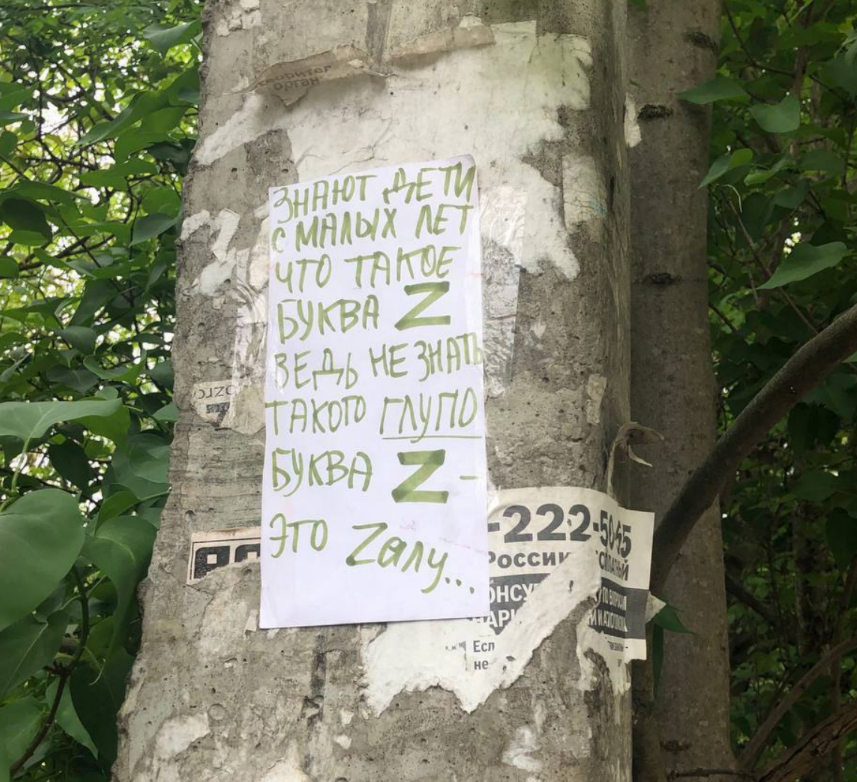 ЗНАЮТ ДЕТИ
С МАЛЫХ ЛЕТ
ЧТО ТАКОЕ
БУКВА Z
ВЕДЬ НЕ ЗНАТЬ
ТАКОГО ГЛУПО
БУКВА Z –
ЭТО Zалу...
орган
-222-50-65
России
Есл
не